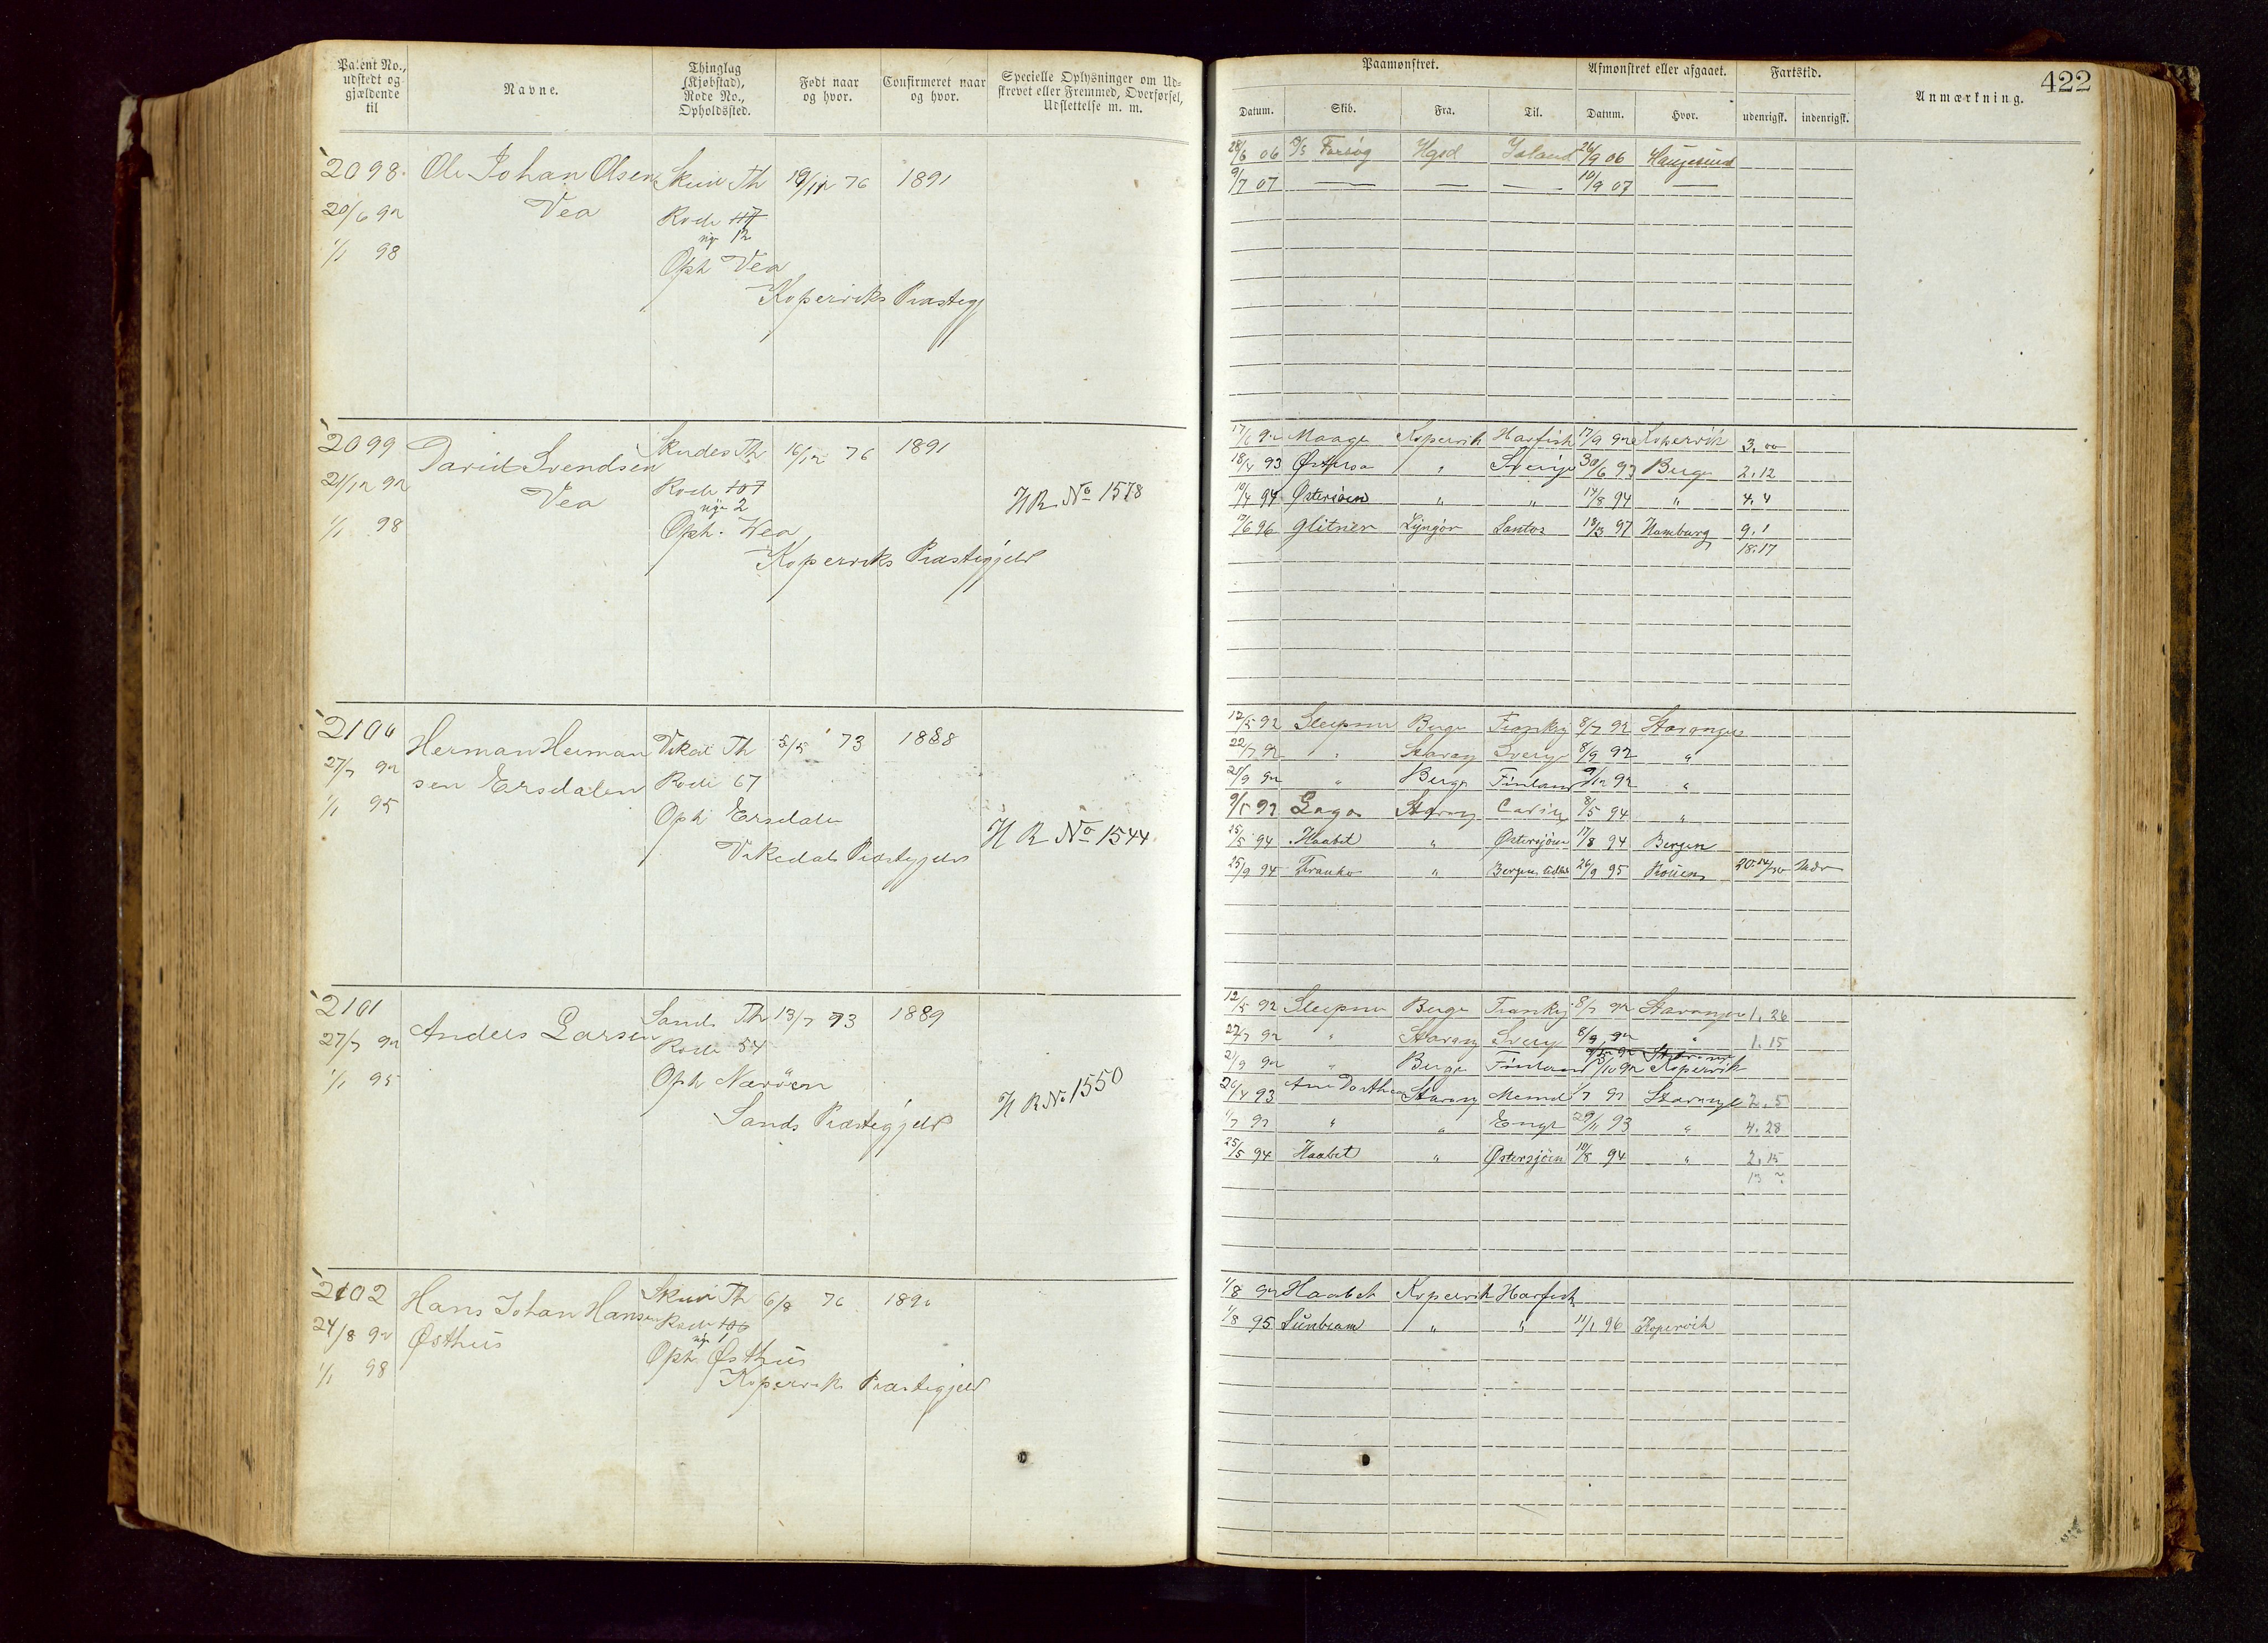 Patent No., udstedt og gjældende til
Navne.
Thinglag (Kjøbstad), Rode No., Opholdssted.
Født naar og hvor.
Confirmeret naar og hvor.
Specielle Oplysninger om Udskrevet eller Fremmed, Overførsel, Udslettelse m. m.
2098. Ole Johan Olsen Skud Th 19/12 76 1891
20/6 92 Vea Rode 117
nye 12
1/1 98 Oph Vea
Koperviks Præstegj
2099 David Svendsen Skudes Th 16/12 76 1891
21/12 92 Vea Rode 107
nye 2 H R. No 1578
1/1 98 Oph. Wea
Koperviks Præstegjeld
2100 Herman Herman Vikedal Th 5/5 73 1888
27/7 92 sen Ersdalen Rode 67
1/1 95 Oph Ersdalen H R No 1544
Vikedals Præstegjeld
2101 Anders Larsen Sands Th 13/7 73 1889
27/7 92 Rode 54
1/1 95 Oph Narøen H R No 1550
Sands Præstegjeld
2102 Hans Johan Hansen Skud Th 6/8 76 1891
24/8 92 Østhus Rode 106
nye 1
1/1 98 Oph. Østhus
Koperviks Præstegjeld
422
Paamønstret. Afmønstret eller afgaaet. Fartstid. Anmærkning.
Datum. Skib. Fra. Til. Datum. Hvor. udenrigsk. indenrigsk.
28/6 06 Forsøg Hgsd Island 26/9 06 Haugesund
9/7 07 — — — 10/9 07 —
17/6 92 Maage Kopervik Havfisk 17/9 92 Kopervik 3. 00
18/4 93 " Sverige 30/6 93 Berge 2. 12
10/4 94 Østersøen " " 14/8 94 " 4. 4
17/6 96 Glitner Lyngör Santos 18/3 97 Hamburg 9. 1
18.17
12/5 92 Sleipner Berge Frankrig 8/7 92 Stavanger
22/7 92 " Stavang Sverig 8/9 92 "
21/9 92 " Berge Finland 9/12 92 "
9/5 93 Saga Stavang 8/5 94 "
25/5 94 Haabet " Østersjöen 17/8 94 Bergen
25/9 94 Franko " 26/9 95 Rouen 20. 14/30 Mdr
12/5 92 Sleipner Berge Frankrig 8/7 92 Stavanger 1. 26
27/7 92 " Stavang Sverig 8/9 92 " 1. 15
21/9 92 " Berge Finland Kopervik
26/4 93 Ane Dorthea Stavang Memel 1/7 93 Stavanger 2. 5
1/7 93 " " Engl 29/11 93 " 4. 28
25/5 94 Haabet " Østersjöen 10/8 94 " 2. 15
1/8 92 Haabet Kopervik Havfisk
1/8 95 Sunbeam " " 11/1 96 Kopervik